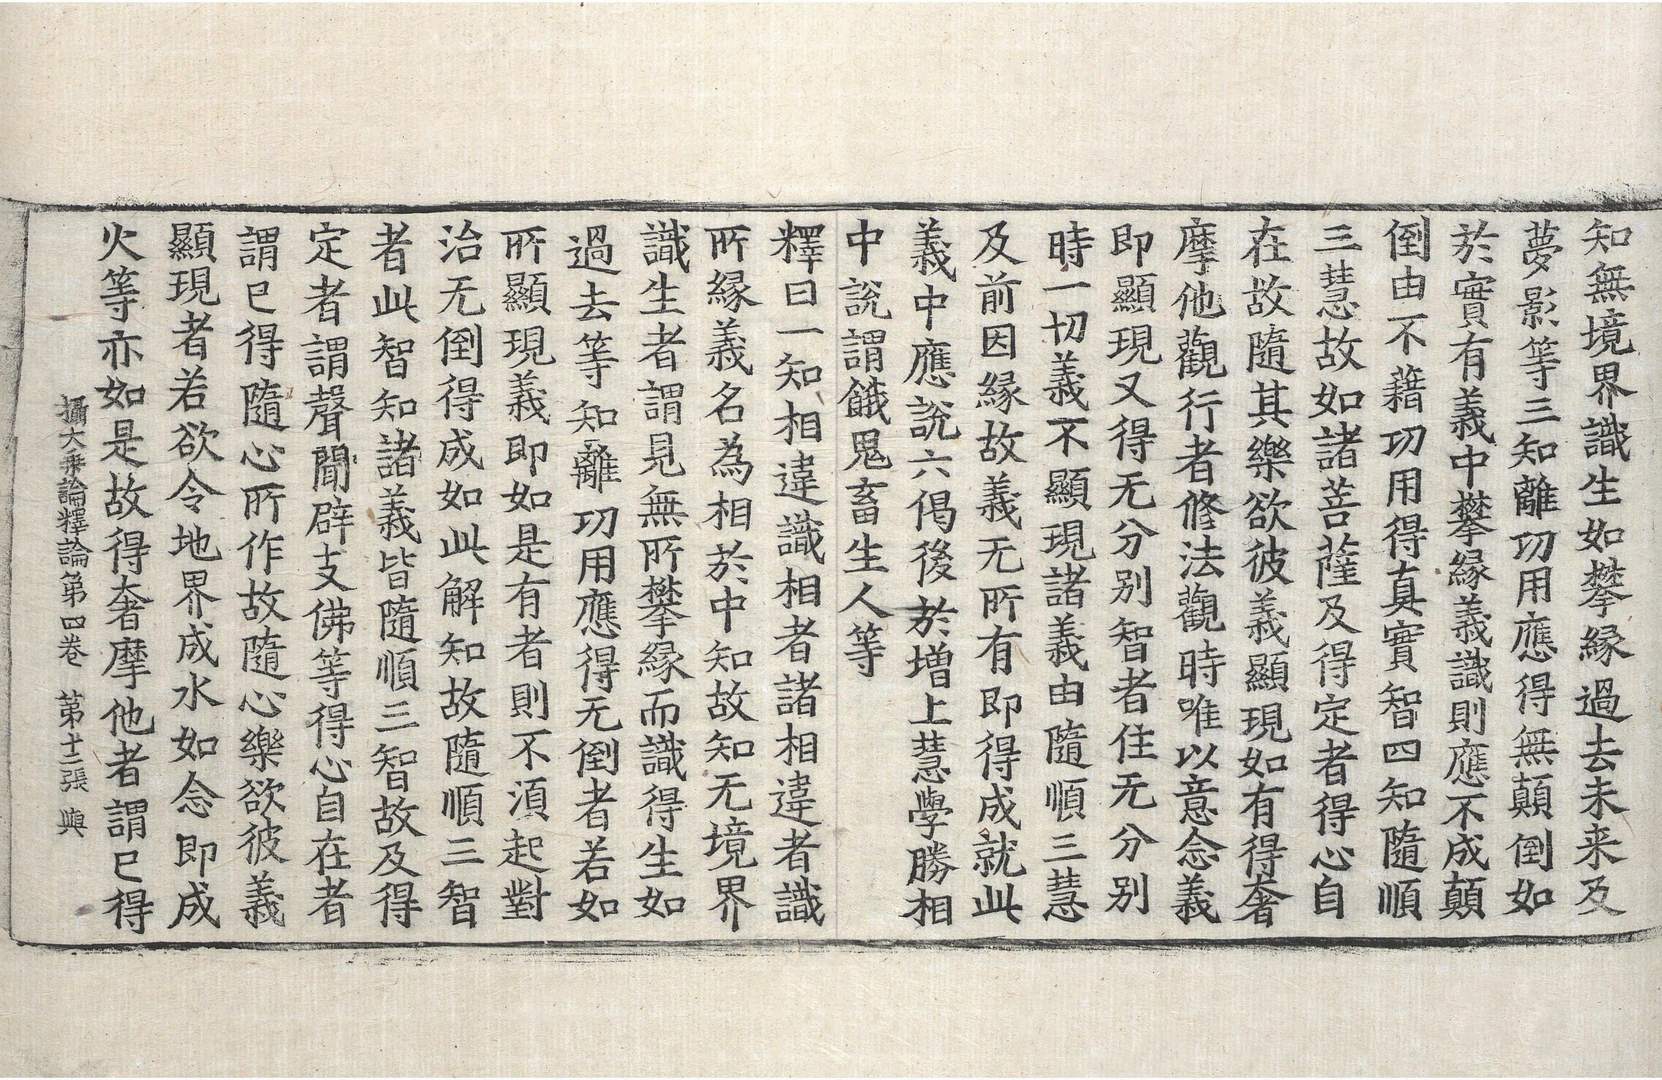 知無境界識生如攀縁過去未来及
夢影等三知離功用應得無顛倒如
於實有義中攀縁義識則應不成顛
倒由不藉功用得真實智四知隨順
三慧故如諸菩薩及得定者得心自
在故隨其樂欲彼義顯現如有得奢
摩他觀行者修法觀時唯以意念義
即顯現又得无分別智者住无分別
時一切義不顯現諸義由隨順三慧
及前因縁故義无所有即得成就此
義中應說六偈後於增上慧學勝相
中說謂餓鬼畜生人等
釋曰一知相違識相者諸相違者識
所縁義名為相於中知故知无境界
識生者謂見無所攀縁而識得生如
過去等知離功用應得无倒者若如
所顯現義即如是有者則不湏起對
治无倒得成如此解知故隨順三智
者此智知諸義皆隨順三智故及得
定者謂聲聞辟支佛等得心自在者
謂已得隨心所作故隨心樂欲彼義
顯現者若欲令地界成水如念即成
火等亦如是故得奢摩他者謂已得
攝大乘論釋論第四卷　第十三張　與